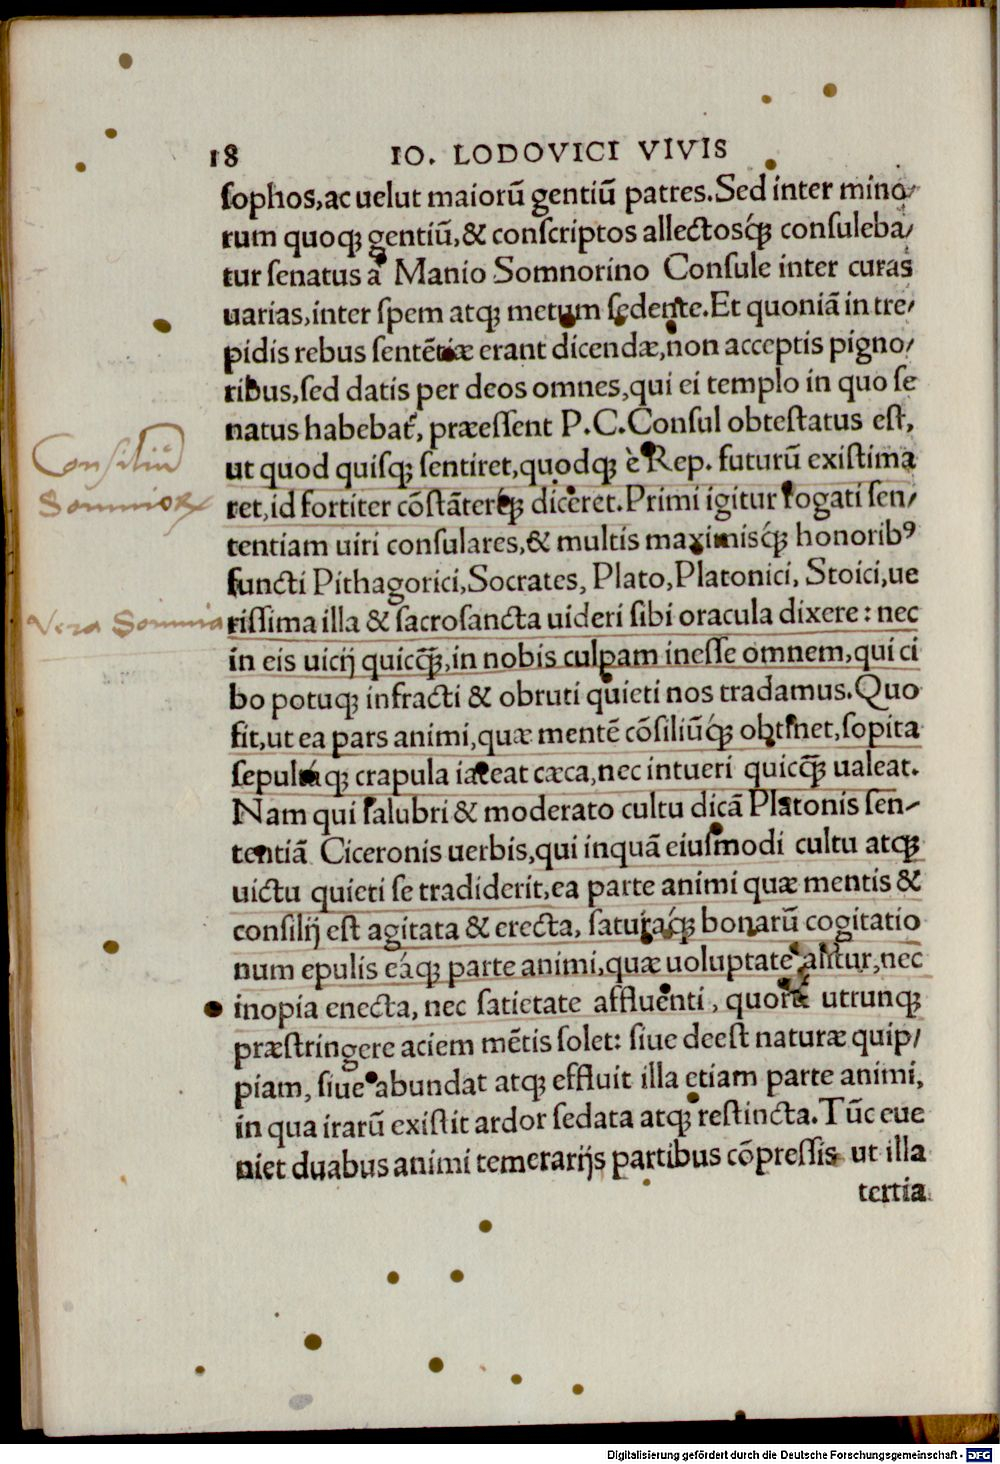 18 IO. LODOVICI VIVIS
sophos, ac uelut maiorũ gentiũ patres. Sed inter mino/
rum quoqꝫ gentiũ, & conscriptos allectosq́ꝫ consuleba/
tur senatus a Manio Somnorino Consule inter curas
uarias, inter spem atqꝫ metum sedente. Et quoniã in tre/
pidis rebus sentẽtiæ erant dicendæ, non acceptis pigno/
ribus, sed datis per deos omnes, qui ei templo in quo se
natus habebat᷑, præessent P.C. Consul obtestatus est,
ut quod quisqꝫ sentiret, quodqꝫ è Rep. futurũ existima
ret, id fortiter cõstãterq́ꝫ diceret. Primi igitur rogati sen/
tentiam uiri consulares, & multis maximisq́ꝫ honoribꝰ
functi Pithagorici, Socrates, Plato, Platonici, Stoici, ue
rissima illa & sacrosancta uideri sibi oracula dixere: nec
in eis uicij quicq̃ꝫ, in nobis culpam inesse omnem, qui ci
bo potuqꝫ infracti & obruti quieti nos tradamus. Quo
fit, ut ea pars animi, quæ mentẽ cõsiliũq́ꝫ obtinet, sopita
sepultáqꝫ crapula iaceat cæca, nec intueri quicq̃ꝫ ualeat.
Nam qui salubri & moderato cultu dicã Platonis sen-
tentiã Ciceronis uerbis, qui inquã eiusmodi cultu atqꝫ
uictu quieti se tradiderit, ea parte animi quæ mentis &
consilij est agitata & erecta, saturáq́ꝫ bonarũ cogitatio
num epulis eáqꝫ parte animi, quæ uoluptate alitur, nec
inopia enecta, nec satietate affluenti, quorũ utrunqꝫ
præstringere aciem mẽtis solet: siue deest naturæ quip/
piam, siue abundat atqꝫ effluit illa etiam parte animi,
in qua irarũ existit ardor sedata atqꝫ restincta. Tũc eue
niet duabus animi temerarijs partibus cõpressis ut illa
tertia
Consiliũ
Somnioꝝ
Vera Somnia
Digitalisierung gefördert durch die Deutsche Forschungsgemeinschaft - DFG